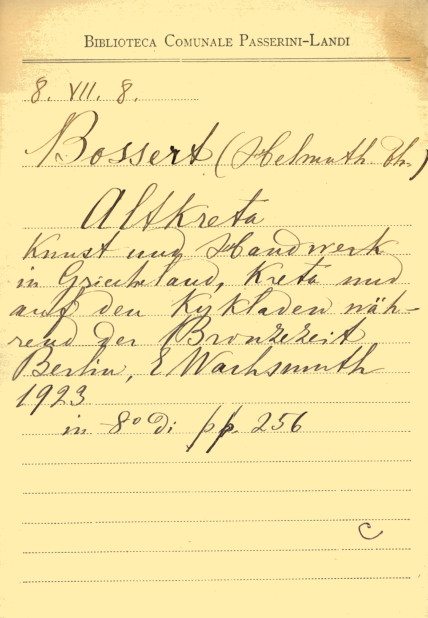 BIBLIOTECA COMUNALE PASSERINI-LANDI
8. VII. 8.
Bossert (Helmuth Th.)
Altkreta
Kunst und Handwerk
in Griecheland, Kreta und
auf den Kykladen wäh-
rend der Bronzezeit
Berlin, E Wachsmuth
1923
in 8º di pp. 256
C